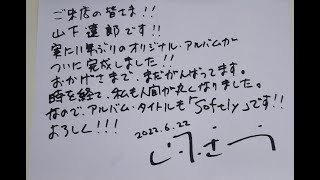 ご来店の皆さま!!
山下達郎です!!
実に11年ぶりのオリジナル・アルバムが
ついに完成しました!!
おかげさまで、まだがんばってます。
時を経て、私も人間が丸くなりました。
なので、アルバム・タイトルも「Softly」です!!
よろしく!!!
2022.6.22